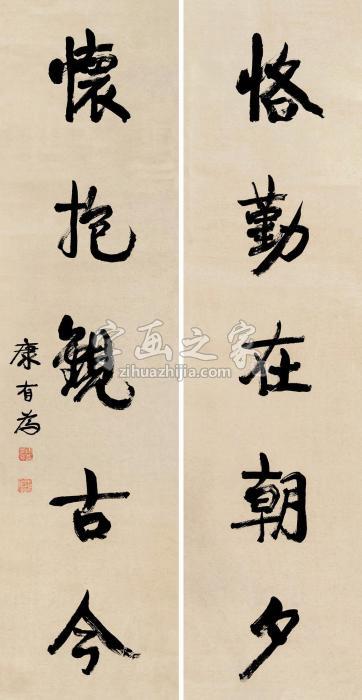 恪勤在朝夕
懷抱觀古今
康有為
字画之家
zihuazhijia.com